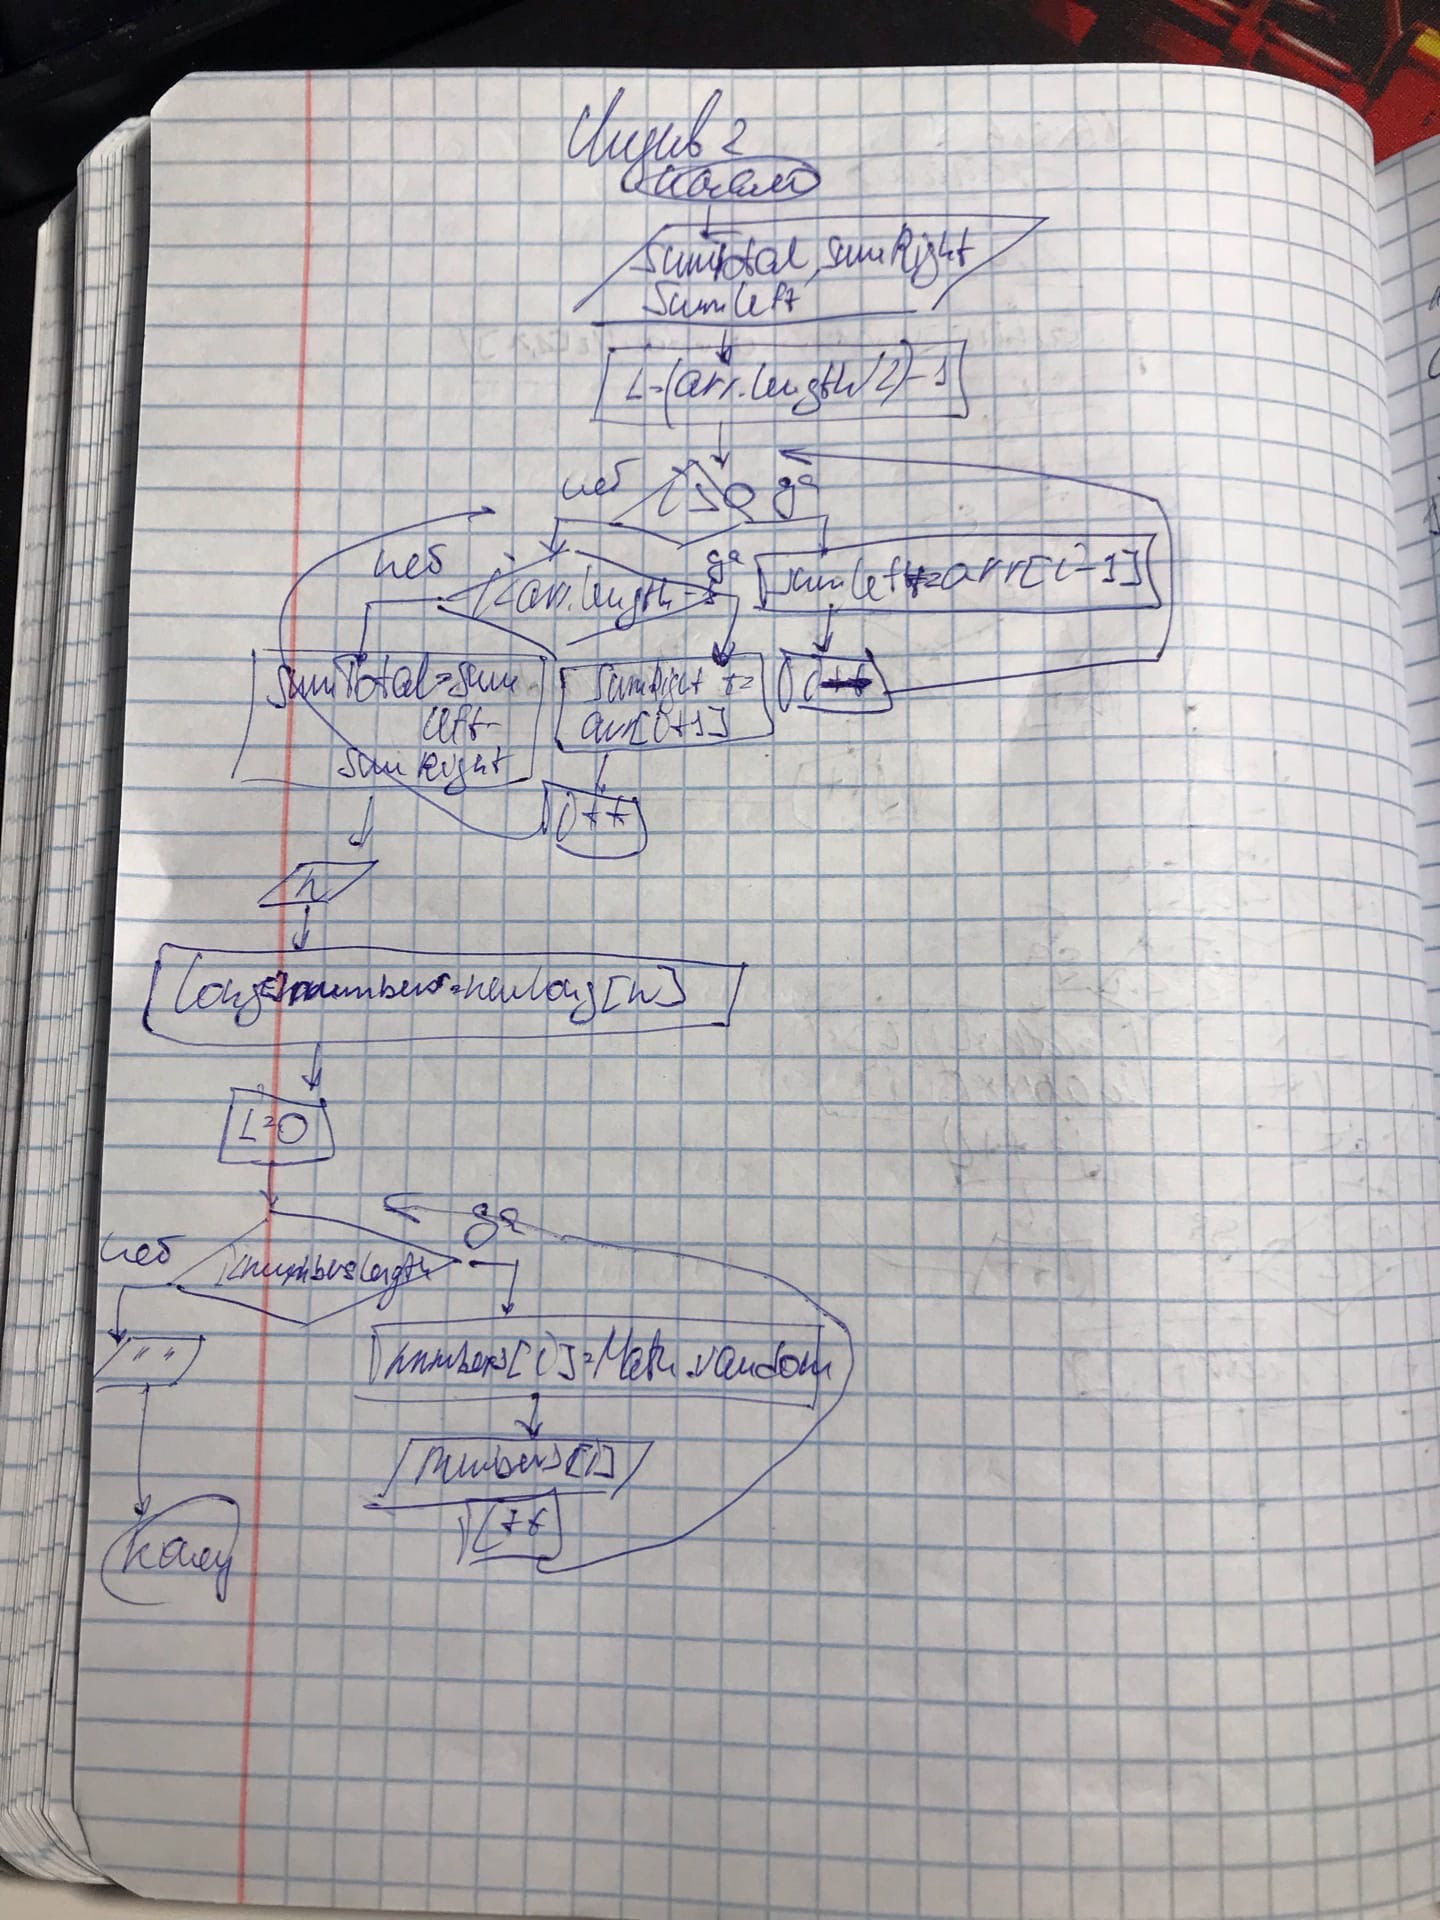 Индив 2
начало
SumTotal, SumRight
SumLeft
i=(arr.length/2)-1
нет
i>0
да
нет
i<arr.length-1
да
SumLeft+=arr[i-1]
SumTotal=Sum
Left-
SumRight
SumRight +=
arr[i+1]
i++
n
long[]numbers=new long[n]
i=0
нет
i<numbers.length
да
" "
numbers[i]=Math.random
numbers[i]
i++
конец